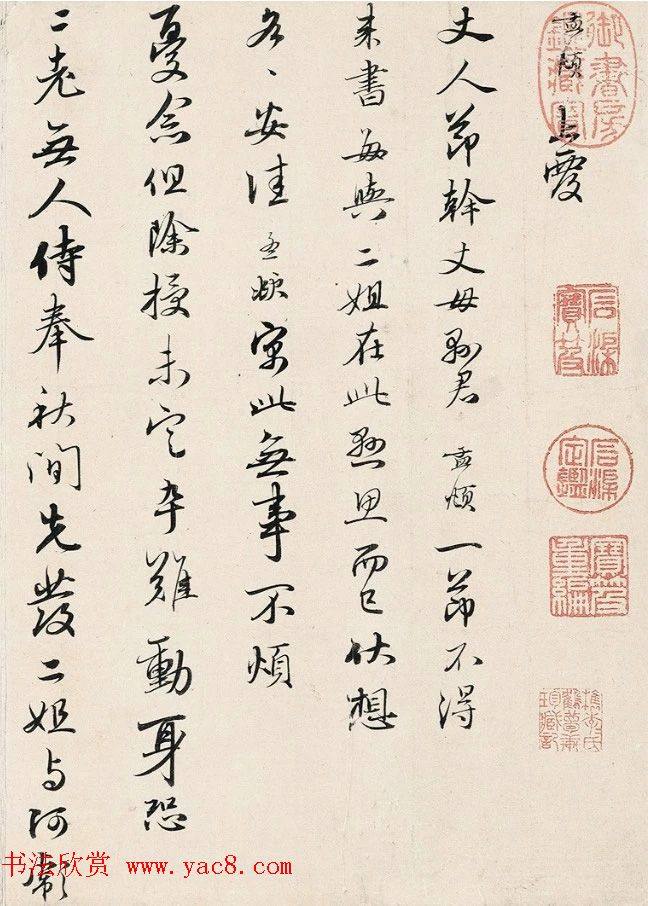 孟頫上覆
丈人節幹丈母縣君孟頫一節不得
来書每與二姐在此懸思而已伏想
各々安佳孟頫寓此無事不煩
憂念但除授未定卒難動身恐
二老無人侍奉秋間先發二姐与阿彪
御書房鑑藏寶
石渠寶笈
石渠定鑑
寶笈重編
檇李李氏鶴夢軒珍藏記
书法欣赏 www.yac8.com